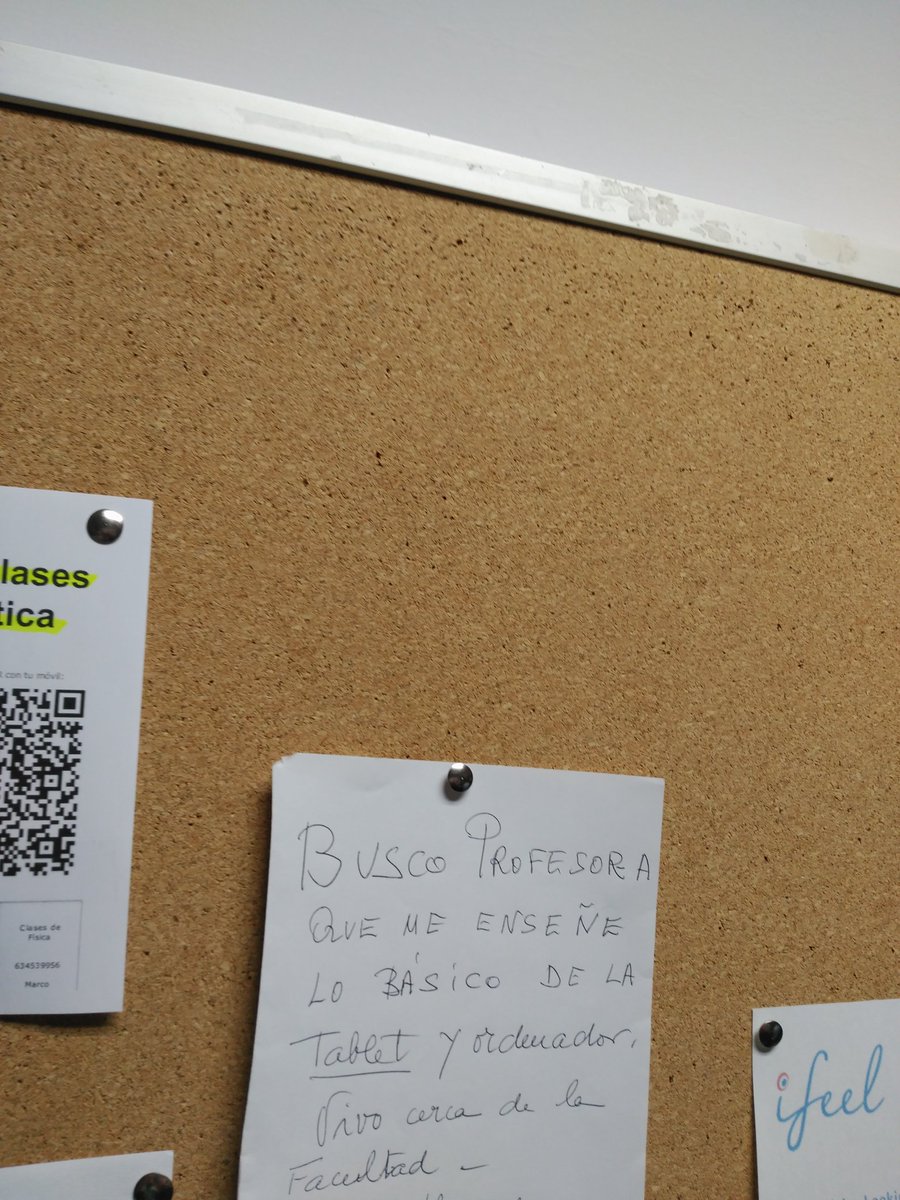 lases
tica
con tu móvil:
Clases de
Física
634539956
Marco
BUSCO PROFESORA
QUE ME ENSEÑE
LO BÁSICO DE LA
Tablet y ordenador.
Vivo cerca de la
Facultad –
ifeel